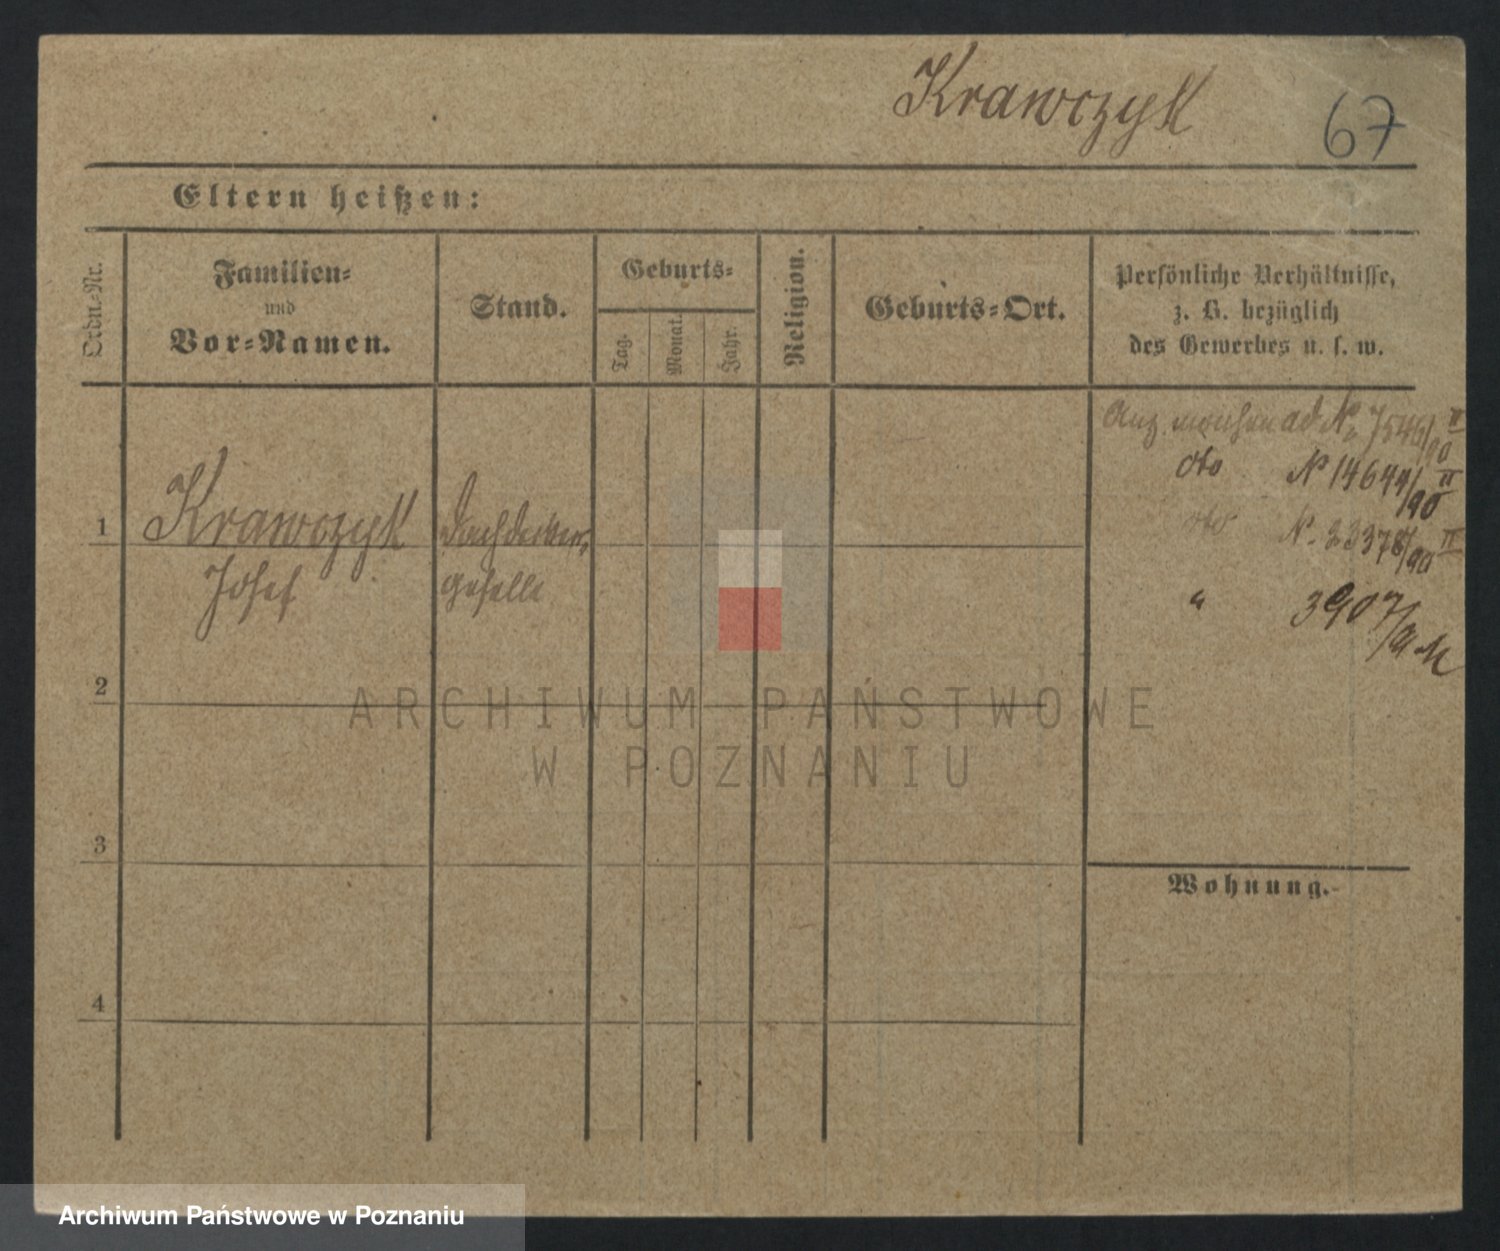 Krawczyk
67
Eltern heißen:
Ordn.-Nr.
Familien-
und
Vor-Namen.
Stand.
Geburts-
Tag.
Monat.
Jahr.
Religion.
Geburts-Ort.
Persönliche Verhältnisse,
z. B. bezüglich
des Gewerbes u. s. w.
ad No 7546/90 II
dto No 14644/90 II
dto No. 23378/90 II
" 3907/91
1 Krawczyk Dachdecker-
Josef geselle
2
3
4
Wohnung.
ARCHIWUM PAŃSTWOWE
W POZNANIU
Archiwum Państwowe w Poznaniu